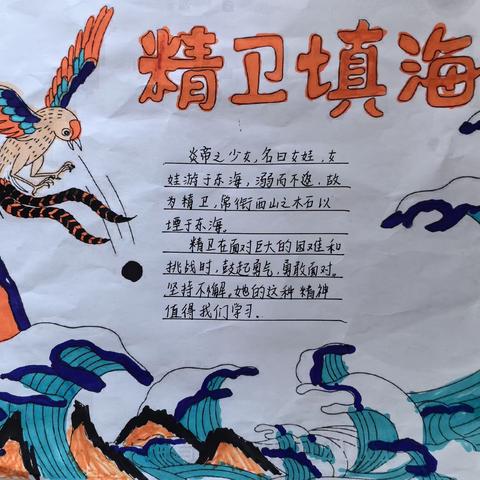 精卫填海
炎帝之少女,名曰女娃,女
娃游于东海,溺而不返,故
为精卫,常衔西山之木石以
堙于东海。
精卫在面对巨大的困难和
挑战时,鼓起勇气,勇敢面对。
坚持不懈。她的这种精神
值得我们学习.